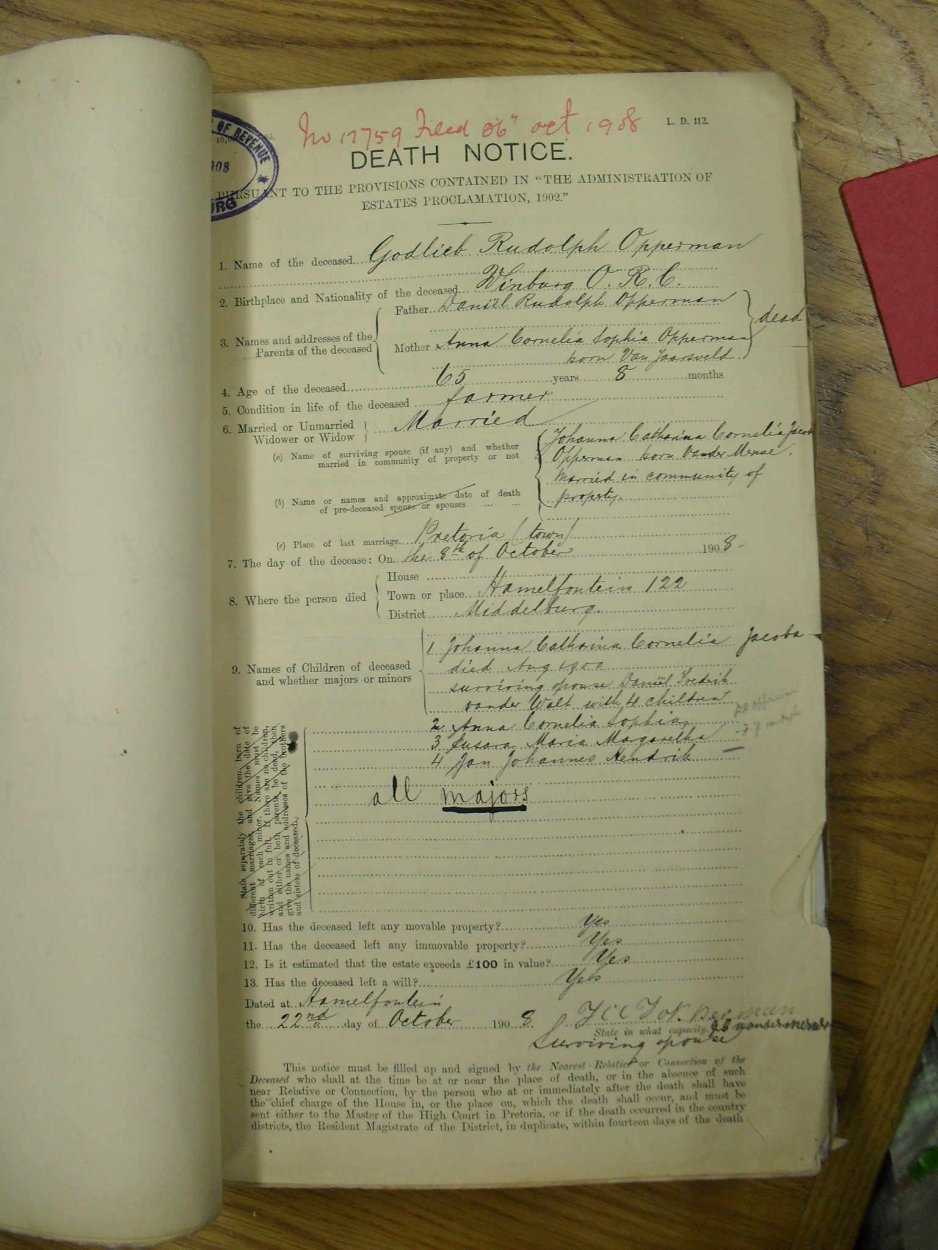 OF REVENUE
No 17759 Filed 26" Oct 1908
L. D. 112.
DEATH NOTICE.
PURSUANT TO THE PROVISIONS CONTAINED IN "THE ADMINISTRATION OF
ESTATES PROCLAMATION, 1902."
1. Name of the deceased Godlieb Rudolph Opperman
2. Birthplace and Nationality of the deceased Winburg O. R. C.
3. Names and addresses of the Parents of the deceased
Father Daniël Rudolph Opperman
Mother Anna Cornelia Sophia Opperman
born Van Jaarsveld
dead
4. Age of the deceased 65 years 8 months
5. Condition in life of the deceased farmer
6. Married or Unmarried Widower or Widow Married
(a) Name of surviving spouse (if any) and whether married in community of property or not
Johanna Catharina Cornelia Jacoba
Opperman born Vander Merwe.
Married in community of
property.
(b) Name or names and approximate date of death of pre-deceased spouse or spouses
(c) Place of last marriage Pretoria (town)
7. The day of the decease: On the 8th of October 1908.
8. Where the person died
House
Town or place Hamelfontein 122
District Middelburg.
9. Names of Children of deceased and whether majors or minors
1 Johanna Catharina Cornelia Jacoba
died Aug 1900
surviving spouse Daniël Fredrik
vander Walt with 4 children
2 Anna Cornelia Sophia
3 Susara Maria Margaretha
4 Jan Johannes Hendrik
all majors
State separately the children born of
different marriages, and give the date of
birth of each minor. Names must be
written out in full. If there are no children,
and either or both parents be dead, then
give the names and addresses of the brothers
and sisters of deceased.
10. Has the deceased left any movable property? Yes
11. Has the deceased left any immovable property? Yes
12. Is it estimated that the estate exceeds £100 in value? Yes
13. Has the deceased left a will? Yes
Dated at Hamelfontein
the 22nd day of October 1908.
State in what capacity
Surviving spouse
This notice must be filled up and signed by the Nearest Relative or Connection of the
Deceased who shall at the time be at or near the place of death, or in the absence of such
near Relative or Connection, by the person who at or immediately after the death shall have
the chief charge of the House in, or the place on, which the death shall occur, and must be
sent either to the Master of the High Court in Pretoria, or if the death occurred in the country
districts, the Resident Magistrate of the District, in duplicate, within fourteen days of the death